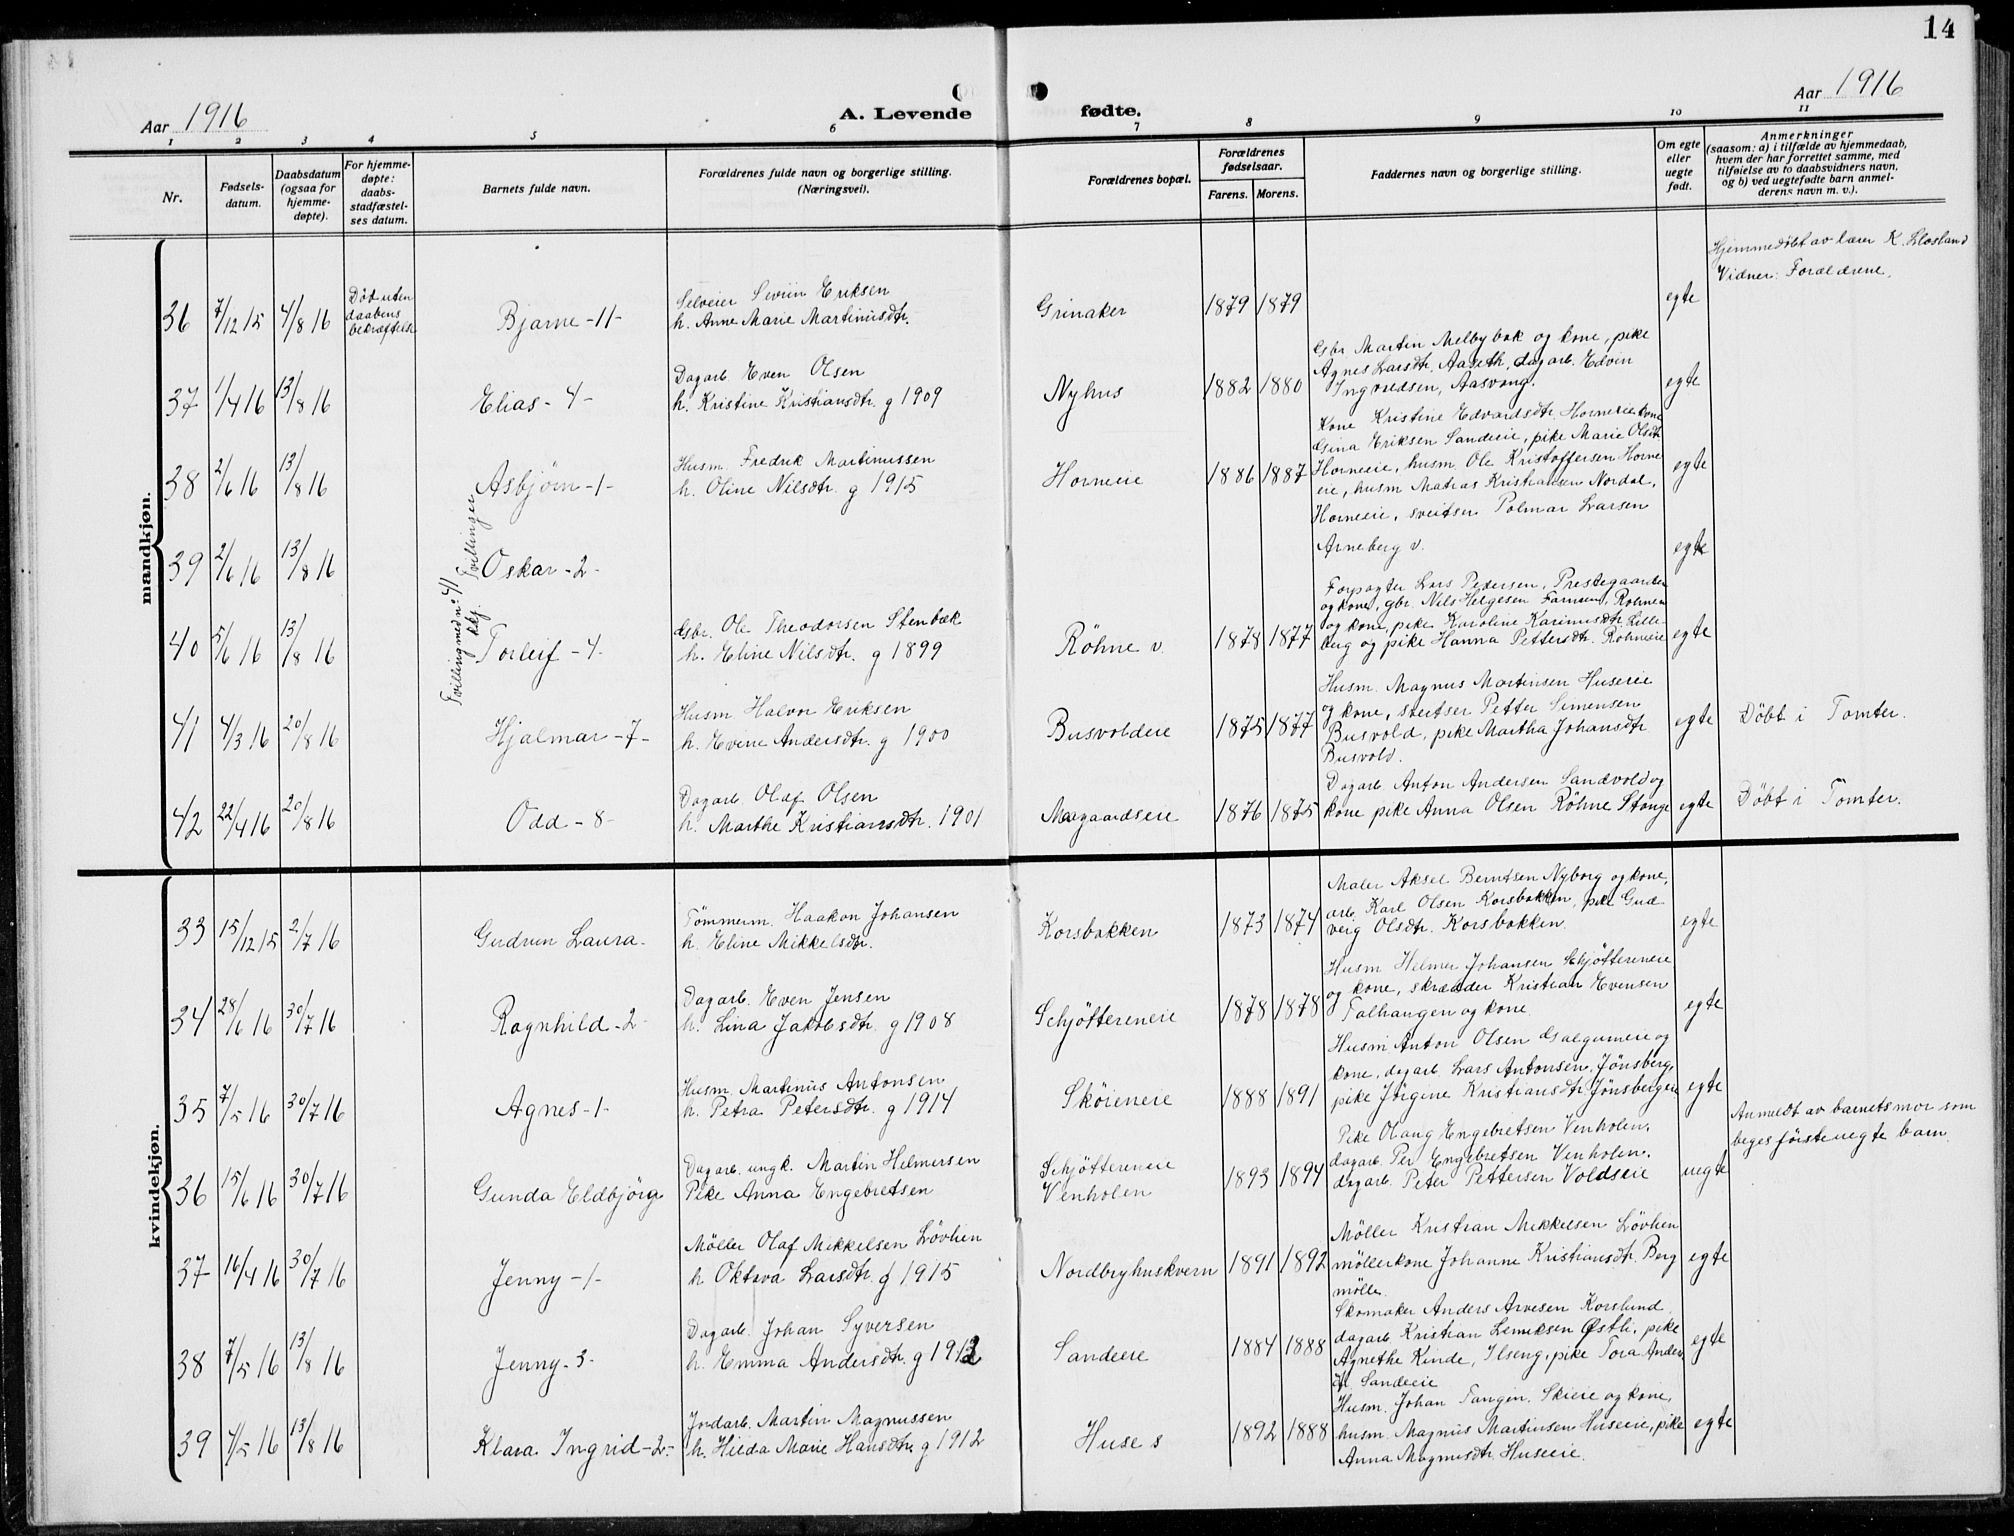 14
Aar 1916
A. Levende fødte.
Aar 1916
1 2 3 4 5 6 7 8 9 10 11
Nr.
Fødsels-
datum.
Daabsdatum
(ogsaa for
hjemme-
døpte).
For hjemme-
døpte:
daabs-
stadfæstel-
ses datum.
Barnets fulde navn.
Forældrenes fulde navn og borgerlige stilling.
(Næringsvei).
Forældrenes bopæl.
Forældrenes
fødselsaar.
Farens. Morens.
Faddernes navn og borgerlige stilling.
Om egte
eller
uegte
født.
Anmerkninger
(saasom: a) i tilfælde av hjemmedaab,
hvem der har forrettet samme, med
tilføielse av to daabsvidners navn,
og b) ved uegtefødte barn anmel-
derens navn m. v.).
mandkjøn.
36 7/12 15 4/8 16
Död uten
daabens
bekræftelse
Bjarne -11-
Selveier Seviin Eriksen
h. Anne Marie Martinusdtr.
Grinaker 1879 1879 egte
Hjemmedöbt av lærer K.
Vidner: Forældrene.
37 1/4 16 13/8 16 Elias - 4 -
Dagarb. Even Olsen
h. Kristine Kristiansdtr. g 1909
Nyhus 1882 1880
Gbr. Martin Melbybak og kone, pike
Agnes Larsdtr. Aaseth, dagarb. Edvin
Ingvaldsen, Aasvang.
egte
38 2/6 16 13/8 16 Asbjörn -1-
Tvillinger
Husm. Fredrik Martinussen
h. Oline Nilsdtr. g 1915
Horneeie 1886 1887
Kone Kristine Edvardsdtr. Horneeie kone
Gina Eriksen Sandeeie, pike Marie Olsdtr
Horneeie, husm. Ole Kristoffersen Horne
eie, husm Matias Kristiansen Nordal,
Horneeie, sveitser Polmar Larsen
Arneberg v.
egte
39 2/6 16 13/8 16 Oskar -2-
egte
40 5/6 16 13/8 16 Torleif - 4.
Tvilling med no. 41
kkj.
Gbr. Ole Theodorsen Stenbæk
h. Eline Nilsdtr. g 1899
Röhne v. 1878 1877
Forpagter Lars Pedersen, Prestegaarden
og kone, gbr. Nils Helgesen Röhnen
og kone, pike Karoline Karinusdtr. Lille-
berg og pike Hanna Pettersdtr. Röhneeie
egte
41 4/3 16 20/8 16 Hjalmar -7-
Husm Halvor Eriksen
h. Evine Andersdtr. g 1900
Busvoldeie 1875 1877
Husm. Magnus Martinsen Huseeie
og kone, sveitser Petter Simensen
Busvold, pike Martha Johansdtr
Busvold.
egte
Döbt i Tomter.
42 22/4 16 20/8 16 Odd - 8 -
Dagarb. Olaf Olsen
h. Marthe Kristiansdtr. 1901
Maagaardseie 1876 1875
Dagarb. Anton Andersen Sandvold og
kone pike Anna Olsen Röhne Stange
egte
Döbt i Tomter.
kvindekjøn.
33 15/12 15 2/7 16 Gudrun Laura.
Tömmerm. Haakon Johansen
h. Eline Mikkelsdtr.
Korsbakken 1873 1874
Maler Aksel Berntsen Nyborg og kone,
arb. Karl Olsen Korsbakken, pike Gud
veig Olsdtr. Korsbakken
egte
34 28/6 16 30/7 16 Ragnhild -2-
Dagarb. Even Jensen
h. Lina Jakobsdtr. g 1908
Schjöttereneie 1878 1878
Husm Helmer Johansen Schjöttereneie
og kone, skrædder Kristian Evensen
Talhaugen og kone
egte
35 7/5 16 30/7 16 Agnes -1-
Husm. Martinus Antonsen
h. Petra Petersdtr. g 1914
Sköieneie 1888 1891
Husm Anton Olsen Galgumeie og
kone, dagarb. Lars Antonsen, Jönsberg,
pike Jörgine Kristiansdtr. Jönsbergeie
egte
36 15/6 16 30/7 16 Gunda Eldbjörg
Dagarb. ungk. Martin Helmersen
Pike Anna Engebretsen
Schjöttereneie
Venholen
1893 1894
Pike Olaug Engebretsen Venholen,
dagarb. Per Engebretsen Venholen,
dagarb. Peter Pettersen Voldseie
uegte
Anmeldt av barnets mor som
beges förste uegte barn.
37 16/4 16 30/7 16 Jenny -1-
Möller Olaf Mikkelsen Lövlien
h. Oktava Larsdtr. g 1915
Nordbryhnskvern 1891 1892
Möller Kristian Mikkelsen Lövlien
möllerkone Johanne Kristiansdtr. Berg
mölle.
egte
38 7/5 16 13/8 16 Jenny -3-
Dagarb. Johan Syversen
h. Emma Andersdtr. g 1912
Sandeeie 1884 1888
Skomaker Anders Arvesen Korslund,
dagarb Kristian Lenriksen Østli, pike
Agnethe Kinde, Ilseng, pike Tora Anders
dtr. Sandeeie
egte
39 4/5 16 13/8 16 Klara Ingrid -2-
Jordarb. Martin Magnussen
h. Hilda Marie Hansdtr. g 1912
Huse s 1892 1888
Husm. Johan Tangen, Skieie og kone,
husm. Magnus Martinsen Huseeie, pike
Anna Magnusdtr. Huseeie.
egte